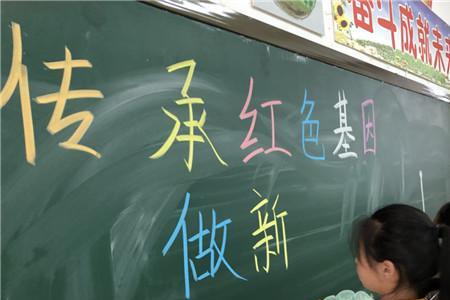 奋斗成就未来
传承红色基因
做新